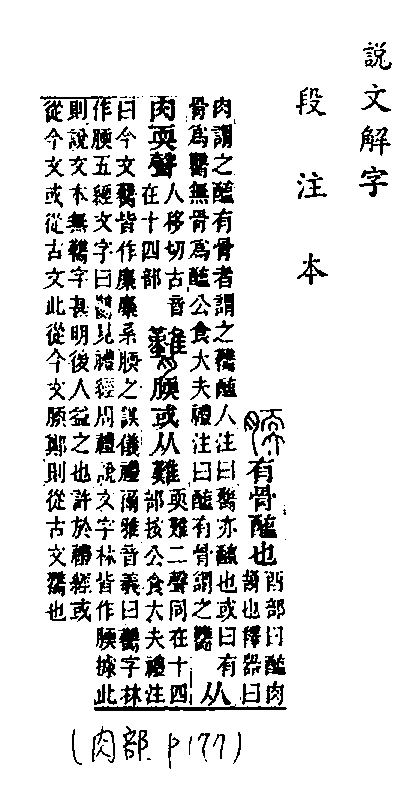 說文解字
段注本
腝有骨醢也
酉部曰醢肉
醬也釋器曰
肉謂之醢有骨者謂之臡醢人注曰臡亦醢也或曰有
骨爲臡無骨爲醢公食大夫禮注曰醢有骨謂之臡
从
肉耎聲
人移切古音
在十四部
臡腝或从難
耎難二聲同在十四
部按公食大夫禮注
曰今文臡皆作麋麋系腝之誤儀禮爾雅音義曰臡字林
作腝五經文字曰臡見禮經周禮說文字林皆作腝據此
則說文本無臡字甚明後人益之也許於禮經或
從今文或從古文此從今文腝鄭則從古文臡也
(肉部 p177)